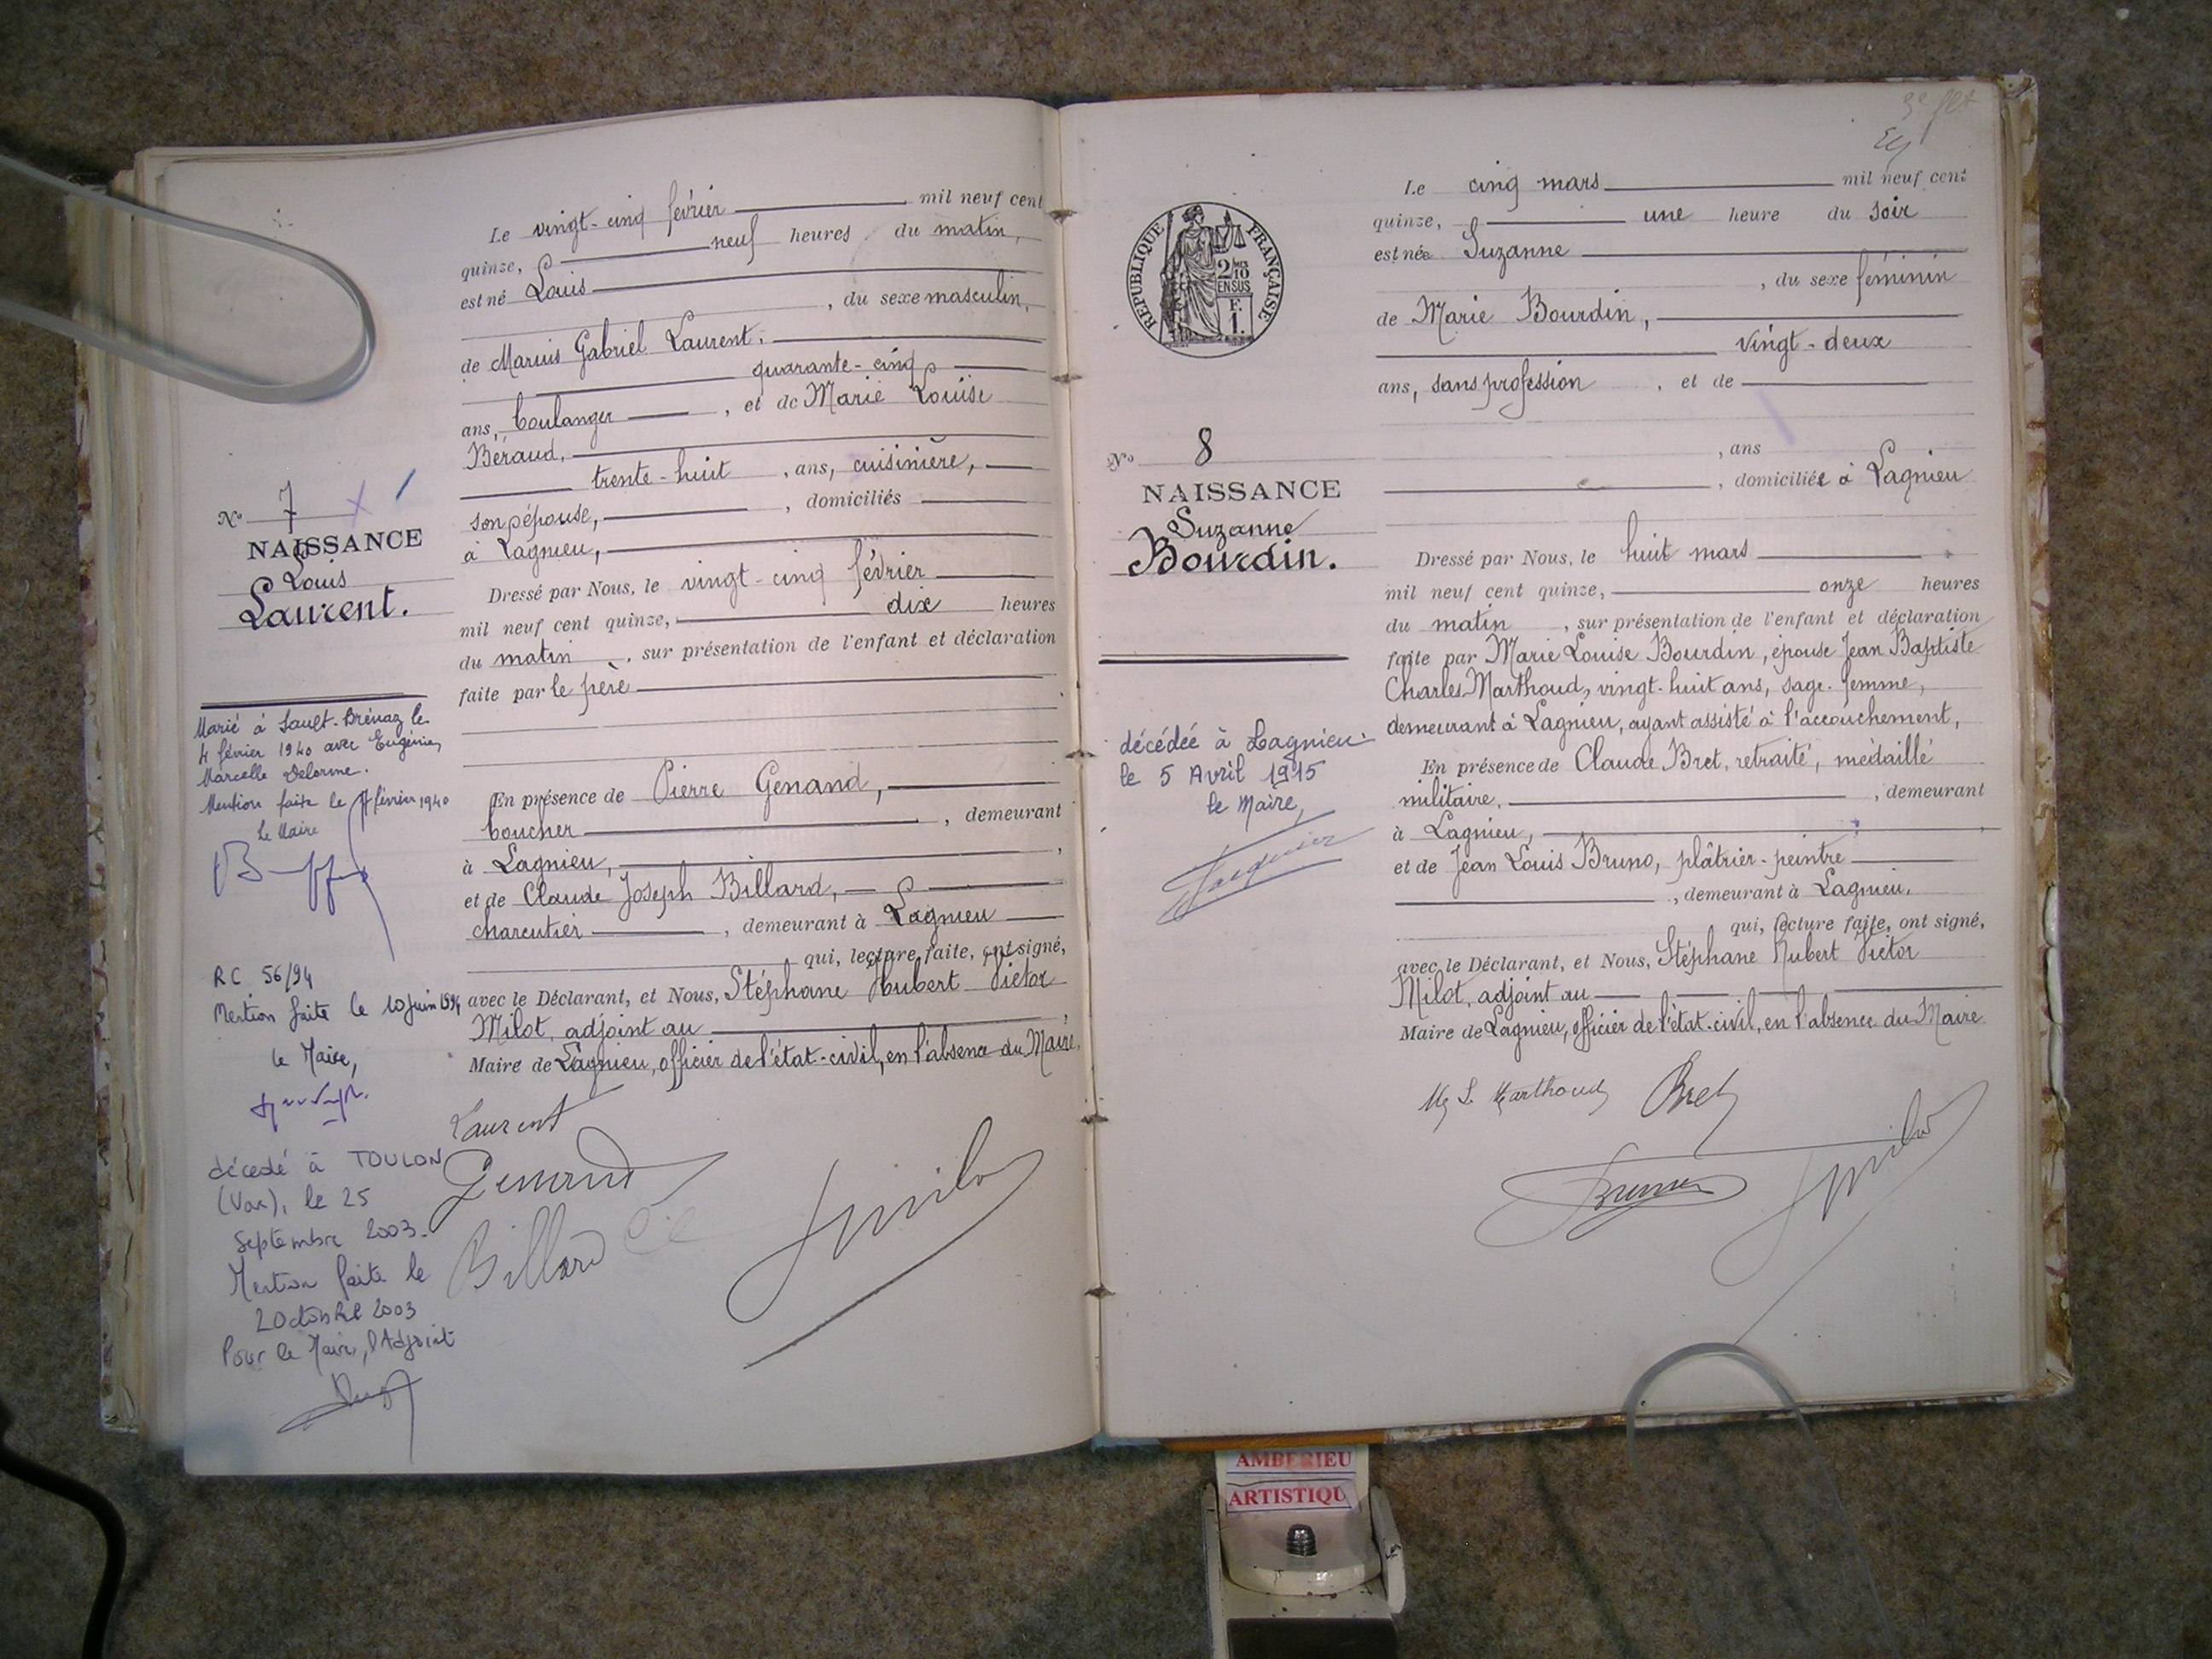 Le vingt-cinq février mil neuf cent
quinze, neuf heures du matin,
est né Louis
, du sexe masculin,
de Marius Gabriel Laurent,
quarante-cinq
ans, boulanger , et de Marie Louise
Béraud,
trente-huit , ans, cuisinière,
son épouse, , domiciliés
à Lagnieu,
Dressé par Nous, le vingt-cinq février
mil neuf cent quinze, dix heures
du matin , sur présentation de l'enfant et déclaration
faite par le père
En présence de Pierre Genand,
boucher , demeurant
à Lagnieu, ,
et de Claude Joseph Billard,
charcutier , demeurant à Lagnieu
qui, lecture faite, ont signé,
avec le Déclarant, et Nous, Stéphane Hubert Victor
Milot, adjoint au ,
Maire de Lagnieu, officier de l'état-civil, en l'absence du Maire.
Laurent
Genand
Billard
Milot
No 7
NAISSANCE
Louis
Laurent.
Marié à Sault-Brénaz le
4 février 1940 avec Eugénie,
Marcelle Delorme.
Mention faite le février 1940
Le Maire
RC 56/94
Mention faite le 10 juin 1994
le Maire,
décédé à TOULON
(Var), le 25
Septembre 2003.
Mention faite le
2 Octobre 2003
Pour le Maire, l'Adjoint
Le cinq mars mil neuf cent
quinze, une heure du soir
est née Suzanne
, du sexe féminin
de Marie Bourdin,
vingt-deux
ans, sans profession , et de
, ans
, domiciliée à Lagnieu
Dressé par Nous, le huit mars
mil neuf cent quinze, onze heures
du matin , sur présentation de l'enfant et déclaration
faite par Marie Louise Bourdin, épouse Jean Baptiste
Charles Marthoud, vingt-huit ans, sage-femme,
demeurant à Lagnieu, ayant assisté à l'accouchement,
En présence de Claude Bret, retraité, médaillé
militaire, , demeurant
à Lagnieu, ,
et de Jean Louis Bruno, plâtrier-peintre
, demeurant à Lagnieu.
qui, lecture faite, ont signé,
avec le Déclarant, et Nous, Stéphane Hubert Victor
Milot, adjoint au
Maire de Lagnieu, officier de l'état-civil, en l'absence du Maire
M. L. Marthoud Bret
Bruno Milot
REPUBLIQUE FRANÇAISE
2/10
EN SUS
F.
1.
No 8
NAISSANCE
Suzanne
Bourdin.
décédée à Lagnieu
le 5 Avril 1915
le Maire,
AMBERIEU
ARTISTIQU